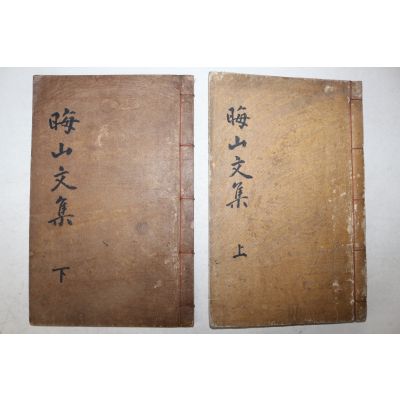 晦山文集 下
晦山文集 上